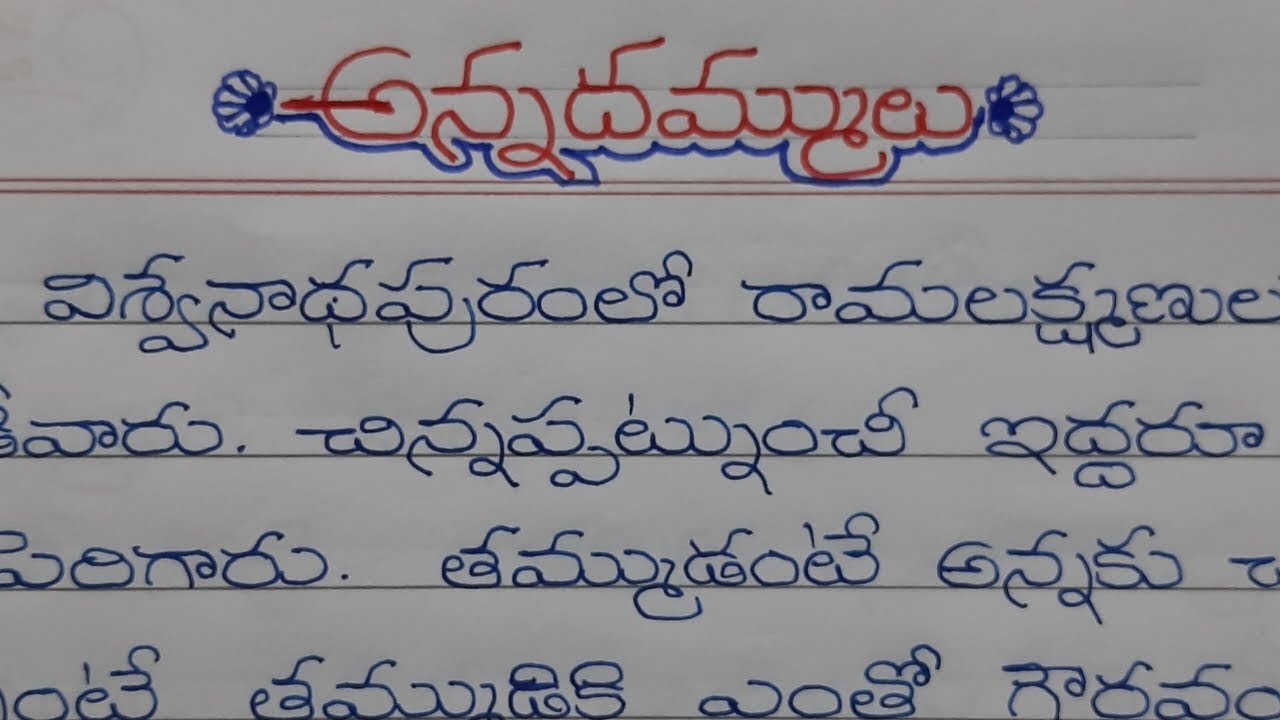 అన్నదమ్ములు
విశ్వేనాథపురంలో రామలక్ష్మణుల
వారు. చిన్నప్పట్నుంచీ ఇద్దరూ
పెరిగారు. తమ్ముడంటే అన్నకు
ంటే తమ్ముడికి ఎంతో గౌరవం